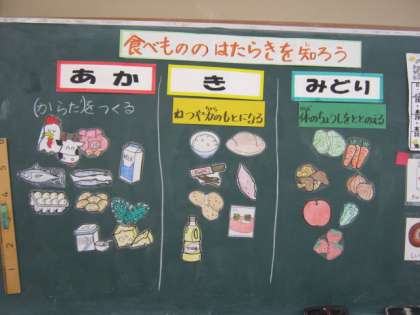 食べもののはたらきを知ろう
あか
き
みどり
(からだ)をつくる
ねつや力のもとになる
体のちょうしをととのえる
MILK
5
4
2
1